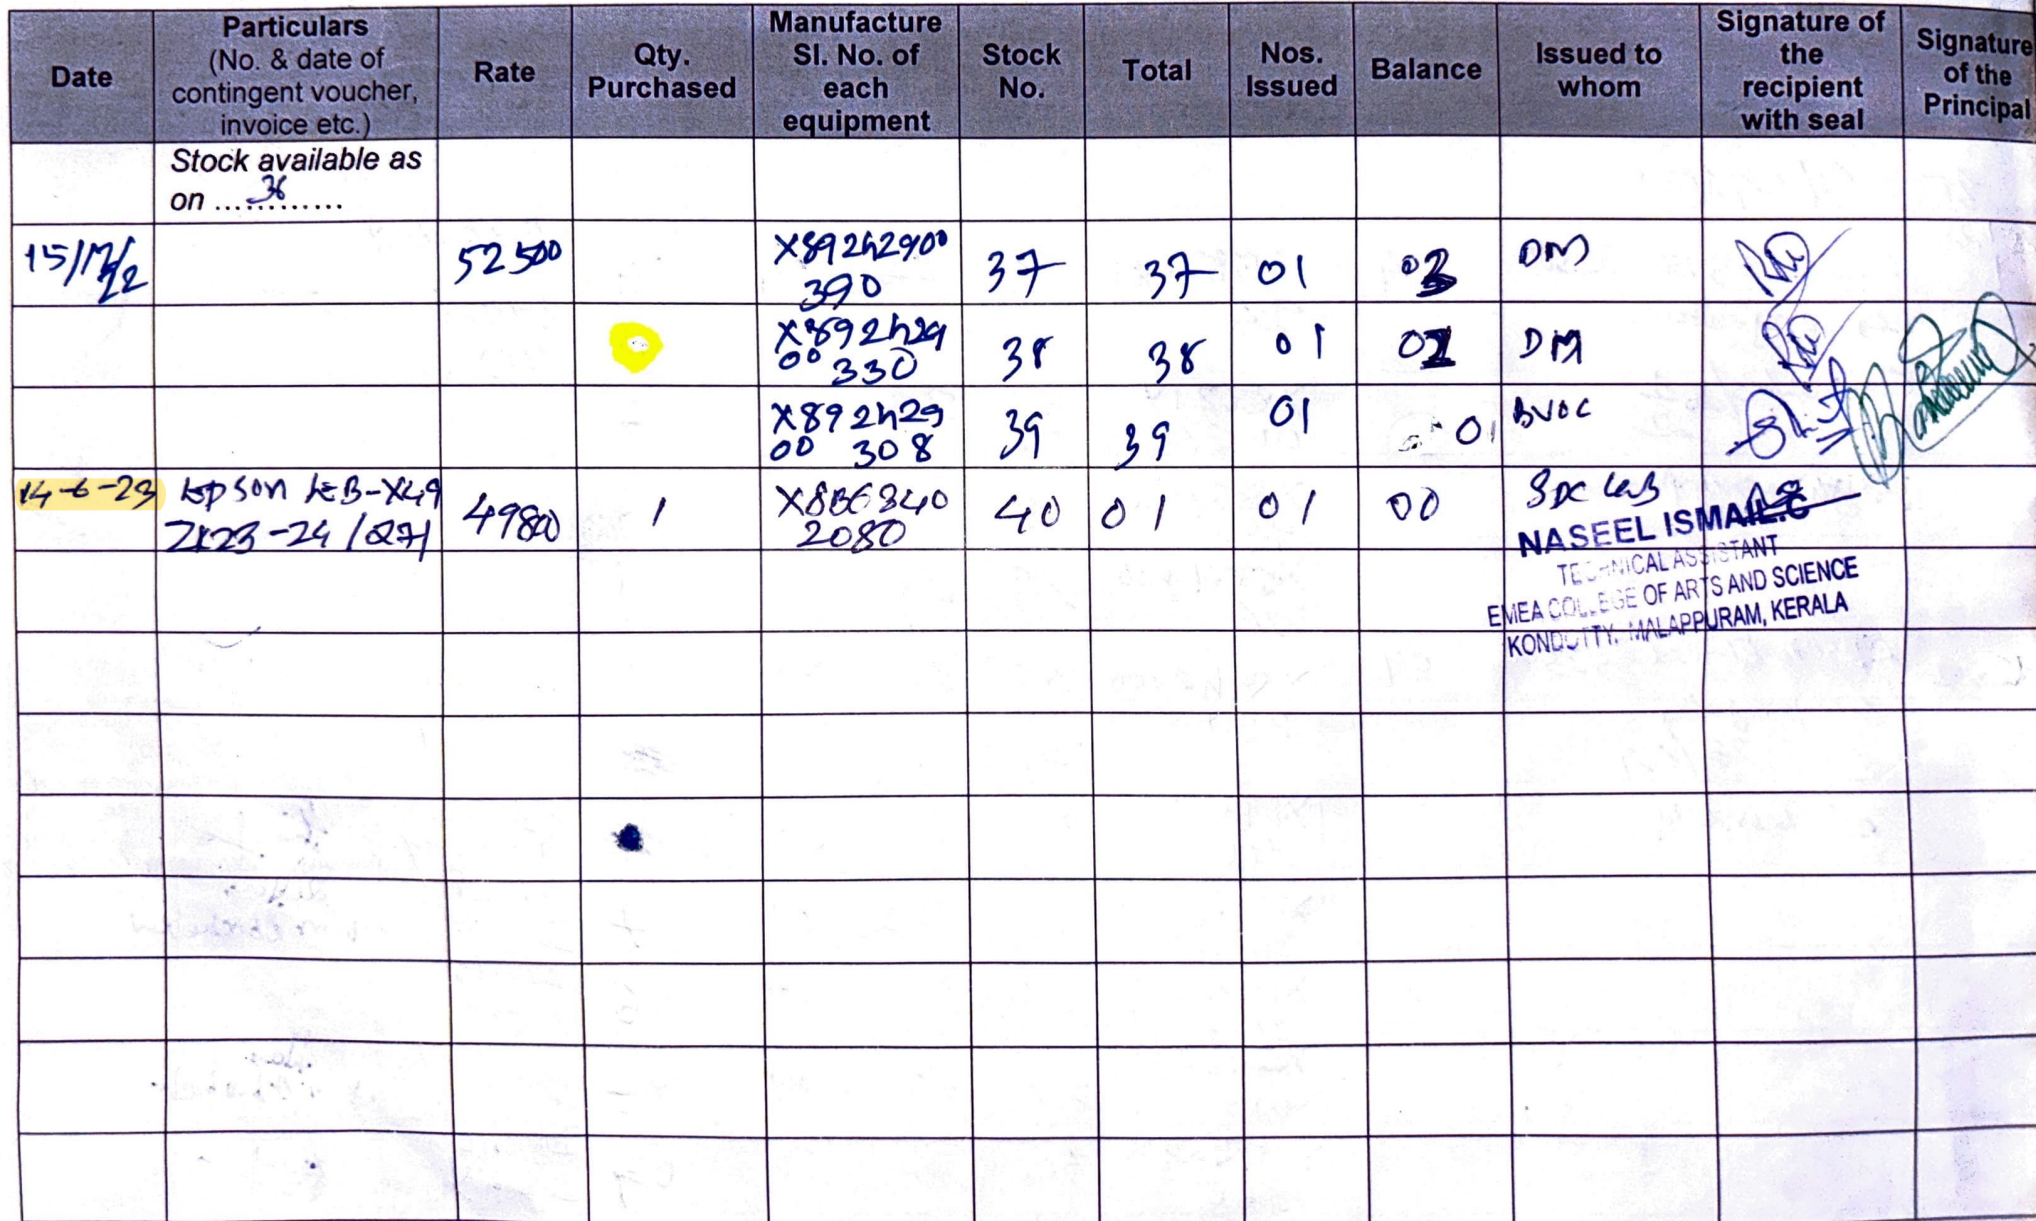 Date
Particulars
(No. & date of
contingent voucher,
invoice etc.)
Rate
Qty.
Purchased
Manufacture
Sl. No. of
each
equipment
Stock
No.
Total
Nos.
Issued
Balance
Issued to
whom
Signature of
the
recipient
with seal
Signature
of the
Principal
Stock available as
on ....36........
15/12/22 52500 X892h2900 37 37 01 DM
390
X892h29 38 38 01 DM
00 330
X892h29 39 39 01 01 BVOC
00 308
14-6-23 Epson EB-X49 49800 1 X8B6840 40 01 01 00 SDC Lab
2K23-24/1271 2080
NASEEL ISMAIL.C
TECHNICAL ASSISTANT
EMEA COLLEGE OF ARTS AND SCIENCE
KONDOTTY, MALAPPURAM, KERALA